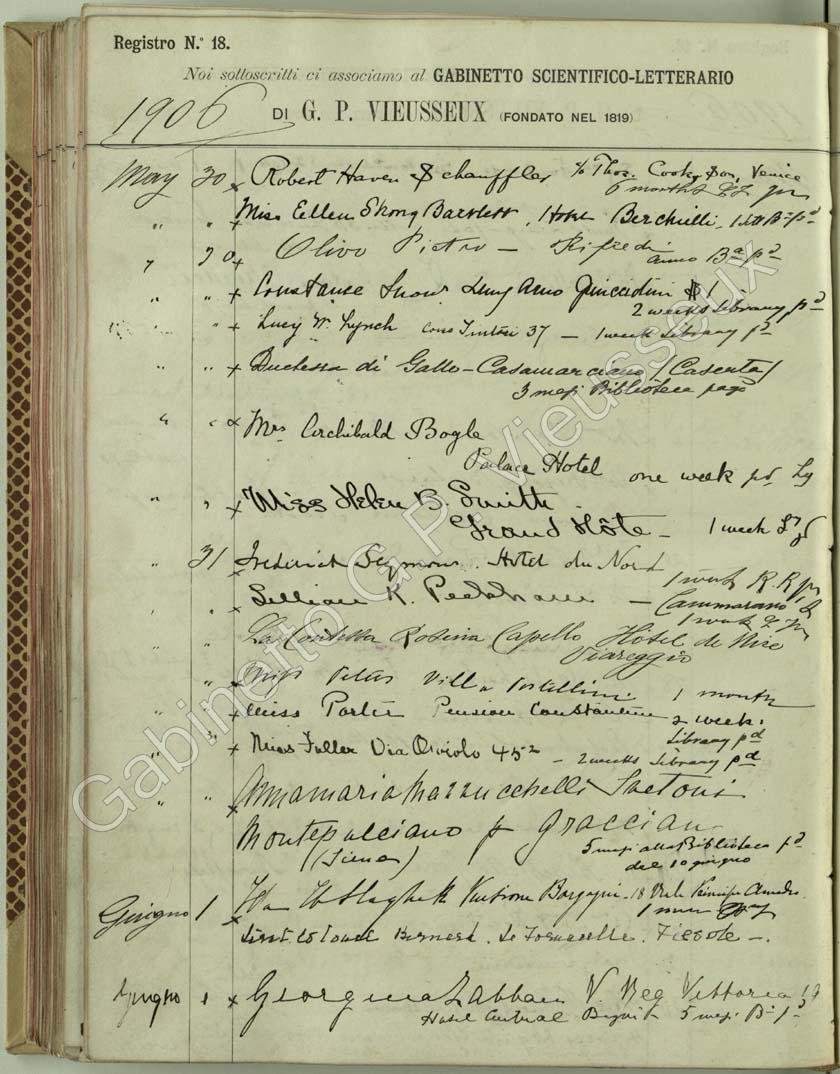 Registro N.° 18.
Noi sottoscritti ci associamo al GABINETTO SCIENTIFICO-LETTERARIO
1906 DI G. P. VIEUSSEUX (FONDATO NEL 1819)
May 30 x Robert Haven Schauffler c/o Thos. Cook & Son, Venice
6 months
" " x Miss Ellen Strong Bartlett, Hotel Berchielli, 1 sett Ba pd
" 30 x Olivo Pietro — Rifredi
anno Ba pd
" " x Constance Snow Lung Arno Guicciardini 1
2 weeks Library pd
" " x Lucy W. Lynch Corso Tintori 37 — 1 week Library pd
" " x Duchessa di Gallo-Casamarciano (Caserta)
3 mesi Biblioteca pagò
" " x Mrs Archibald Bogle
Palace Hotel one week pd Ly
" " x Miss Helen B. Smith
Grand Hôtel — 1 week
" 31 x Frederick Seymour. Hotel du Nord
1 week R.R.
" " x Lillian K. Peckham — Cammarano
1 week
" " La Contessa Rosina Capello Hôtel de Nice
Viareggio
" " x Miss Peters Villa 1 month
" " x Miss Porter Pension Constantin 2 weeks
Library pd
" 31 x Miss Fuller Via Oriolo 45 — 2 weeks Library pd
" " x Annamaria Mazzucchelli
Montepulciano p Gracciano
(Siena) 5 mesi alla Biblioteca pd
dal 10 giugno
Giugno 1 x Pensione Borgagni — 18 Viale Principe Amedeo
1 mese
x Lieut. Colonel Bernard. Le Fornacelle. Fiesole —.
Giugno 1 x Georgina V. Reg Vittoria
Hotel Central 5 mesi Ba pd
Gabinetto G.P. Vieusseux